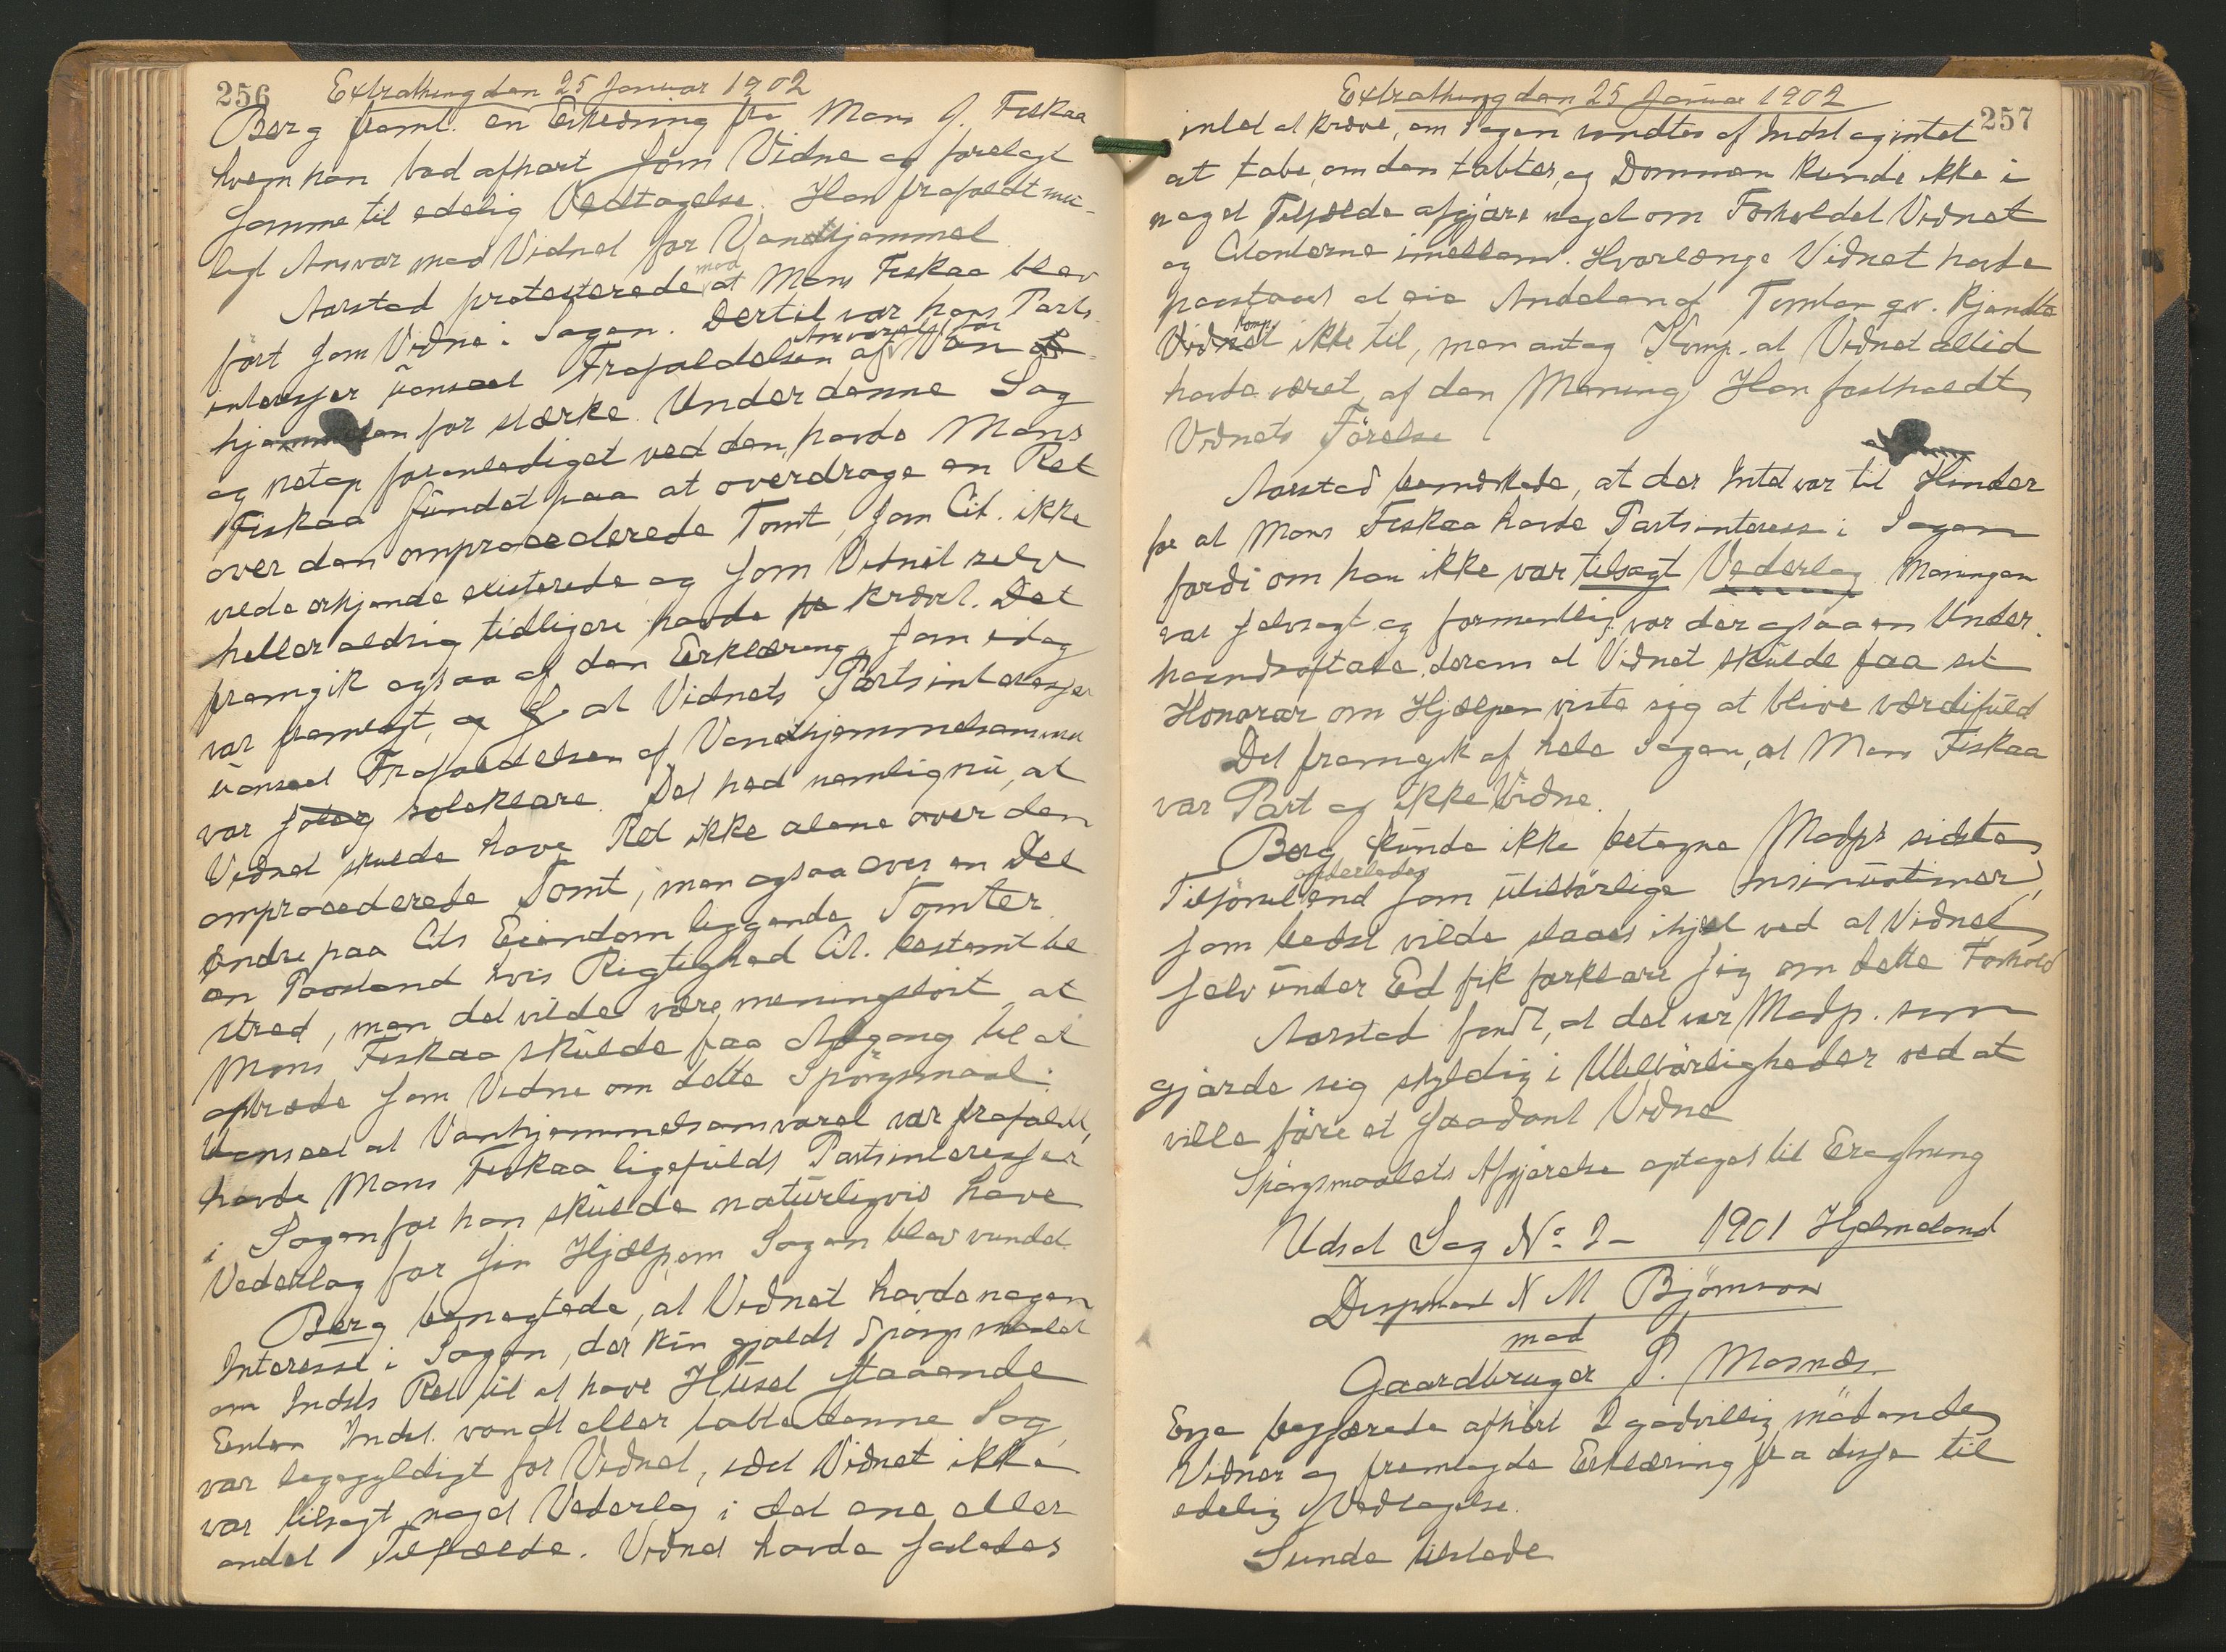 256 Extrathing den 25 Januar 1902
Berg freml. en Erklæring fra Mons J. Fiskaa
hvem han bad afhørt som Vidne og forelagt
samme til edelig Vedtagelse. Han frafaldt mu-
ligt Ansvar mod Vidnet for Vandhjemmel
Aarstad protesterede mod at Mons Fiskaa blev
ført som Vidne i Sagen. Dertil var hans Parts-
interesser uanseet Frafaldelsen af Ansvaret for Van
hjemmelen for stærke. Under denne Sag
og netop foranlediget ved den havde Mons
Fiskaa fundet paa at overdrage en Ret
over den omprocederede Tomt, som Cit. ikke
vilde erkjende existerede og som Vidnet selv
heller aldrig tidligere havde krævet. Det
fremgik ogsaa af den Erklæring som idag
var fremlagt, at Vidnets Partsinteresser
uanseet Frafaldelsen af Vandhjemmelsansvar
var soleklare. Det hed nemlig nu, at
Vidnet skulde have Ret ikke alene over den
omprocederede Tomt, men ogsaa over en Del
andre paa Cits Eiendom liggende Tomter
en Paastand hvis Rigtighed Cit. bestemt be
stred, men det vilde være meningsløst, at
Mons Fiskaa skulde faa Adgang til at
optræde som Vidne om dette Spørgsmaal.
Uanseet at Vanhjemmelsansvaret var frafaldt,
havde Mons Fiskaa ligefuldt Partsinteresser
i Sagen for han skulde naturligvis have
Vederlag for sin Hjælp, om Sagen blev vundet.
Berg benegtede, at Vidnet havde nogen
Interesse i Sagen, der kun gjaldt Spørgsmaalet
om Indsts Ret til at have Huset staaende
Enten Indst. vandt eller tabte denne Sag
var ligegyldigt for Vidnet, idet Vidnet ikke
var tilsagt noget Vederlag i det ene eller
andet Tilfælde. Vidnet havde saaledes
Extrathing den 25 Januar 1902 257
intet at kræve, om Sagen vandtes af Indst og intet
at tabe, om den tabtes, og Dommen kunde ikke i
noget Tilfælde afgjøre noget om Forholdet Vidnet
og Citanterne imellem. Hvorlænge Vidnet havde
paastaaet at eie Andelen af Tomten gv. kjendte
Komp. ikke til, men antog Komp. at Vidnet altid
havde været af den Mening Han fastholdt
Vidnets Førelse
Aarstad bemærkede, at der Intet var til Hinder
for at Mons Fiskaa havde Partsinteresse i Sagen
fordi om han ikke var tilsagt Vederlag Meningen
var selvsagt og formentlig var der ogsaa en Under
haandsaftale derom at Vidnet skulde faa sit
Honorar om Hjælpen viste sig at blive værdifuld
Det fremgik af hele Sagen, at Mons Fiskaa
var Part og ikke Vidne.
Berg kunde ikke betegne Modps sidste
Tilførsel end som utilbørlige Insinuationer,
som bedst vilde slaaes ihjel ved at Vidnet
selv under Ed fik forklare sig om dette Forhold
Aarstad fandt, at det var Modp. som
gjorde sig skyldig i Utilbørligheder ved at
ville føre et saadant Vidne
Spørgsmaalets Afgjørelse optages til Eragtning
Udsat Sag No 2 - 1901 Hjelmeland
N M Bjørnson
mod
Gaardbruger P. Mosnes.
begjærede afhørt 2 godvillig mødende
Vidner og fremlagde Erklæring fra disse til
edelig Vedtagelse.
Sunde tilstede